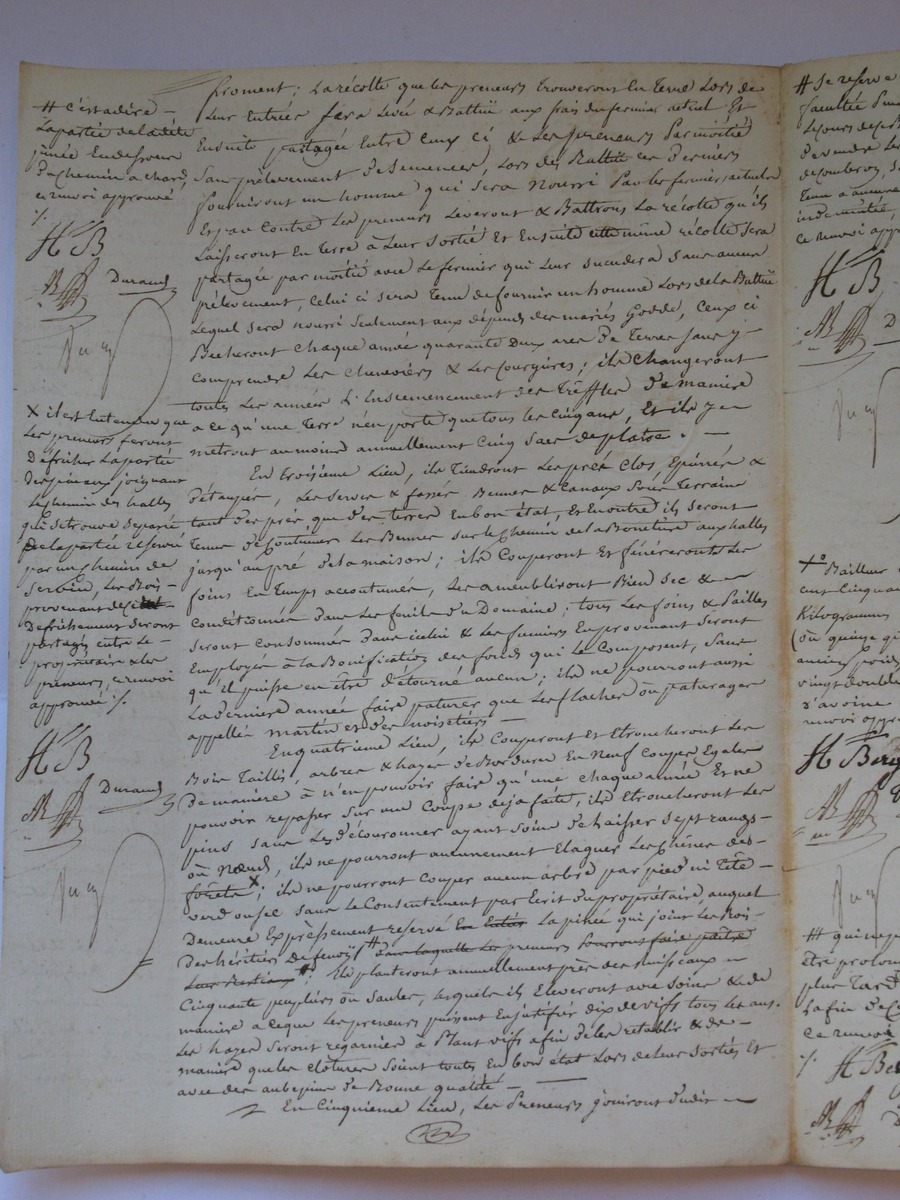 froment ; La récolte que les preneurs trouveront En Terre Lors de
Leur Entrée sera Levé & Battüe aux frais du fermier actuel Et
Ensuite partagée Entre Ceux ci & Les preneurs Par moitié
Sans prélevement de Semences, Lors des Battüe ces Derniers
fourniront un homme qui sera nourri Par les fermiers actuels
Et par Contre Les preneurs Leveront & Battrons La récolte qu'ils
Laisseront En Terre à Leur Sortie Et Ensuite cette même récolte Sera
partagée par moitié avec Le fermier qui Leur succedera Sans aucun
prélevement, Celui ci sera Tenu de fournir un homme Lors de la Battüe
Lequel sera nourri Seulement aux dépends des mariés Godde, Ceux ci
Becheront Chaque année quarante Deux ares de Terres Sans y
Comprendre Les Chenevières & Les Courgères ; ils Changeront
toutes Les années L'Ensemencement des Trèffles De manière
a ce qu'une Terre n'en porte que tous les Cinq ans, Et ils y en
metront au moins annuellement Cinq Sacs de platre . —
En troisième Lieu, ils Tiendront Les prés Clos, Epierrés &
D'étaupés, Les serves & fossés Bennes & Canaux Sous Terrains
tant des prés que des terres En bon état, Et En outre ils seront
Tenus de Coutumer Les Bennes sur le Chemin de la Bonetière aux halles
jusqu'au pré de la maison ; ils Couperont Et féneront Les
foins En Temps accoutumés, Les ameubliront Bien Sec & —
Conditionnés dans Les fenils du Domaine ; tous Les foins & Pailles
seront Consommés Dans icelui & Les fumiers En provenant Seront
Employés à la Bonification des fonds qui le Composent, Sans
qu'il puisse en être détourné aucun ; ils ne pourront aussi
La dernière année faire paturer que Les flaches ou paturages
appellés martin et des noisetiers —
En quatrième Lieu, ils Couperont et Etroncheront Les
Bois Taillis, arbres & hayes de Bordures En Neuf Coupes Egales
De manière à n'en pouvoir faire qu'une chaque année Et ne
pouvoir repasser Sur une Coupe déja faite, ils Etroncheront Les
pins sans Les découronner ayant Soins de Laisser Sept rangs —
ou Nœuds, ils ne pourront aucunement Elaguer Les Chênes des
forets × ; ils ne pourront Couper aucun arbre par pied ni Tête —
verd ou sec sans Le Consentement par Ecrit du propriétaire, auquel
Demeure Expressement reservé La pinée qui joint Les Bois —
Des héritiers # dans laquelle les preneurs pourront faire paitre
Leurs Bestiaux ; ils planteront annuellement près des ruisseaux —
Cinquante peupliers ou Saules, lesquels ils Eleveront avec Soins & de
manière a ce que Les preneurs puissent En justifier dix de vifs tous les ans.
Les hayes seront regarnies à Plant vifs afin de les retablir & de —
manière que les clotures Soient toutes En bon état Lors de leurs Sorties Et
avec des aubepins de Bonne qualité —
En Cinquième Lieu, Les Preneurs jouiront Dudit —
# C'est a dire —
La partie de la dite
pinée En dessous
Du chemin a chars,
ce renvoi approuvé
./.
H B
Durand
× il est Entendu que
Les preneurs feront
Défricher La partie
Des pineaux joignant
Le chemin des halles
qui se trouve séparée
De la partie réservée
par un chemin de
Servin, Les Bois —
provenant de ce
Défrichement Seront
partagés entre Le —
propriétaire & les
preneurs, ce renvoi
approuvé ./.
H B
Durand
# Se reserve
faculté
Tenu a aucune
indemnité,
ce renvoi
H B
D
Bailleur
cent Cinquante
Kilogrammes
(ou quinze
anciens poids
vingt doubles
d'avoine
renvoi
H
# qui ne
être
plus Tard
La fin de
ce renvoi
./.
H